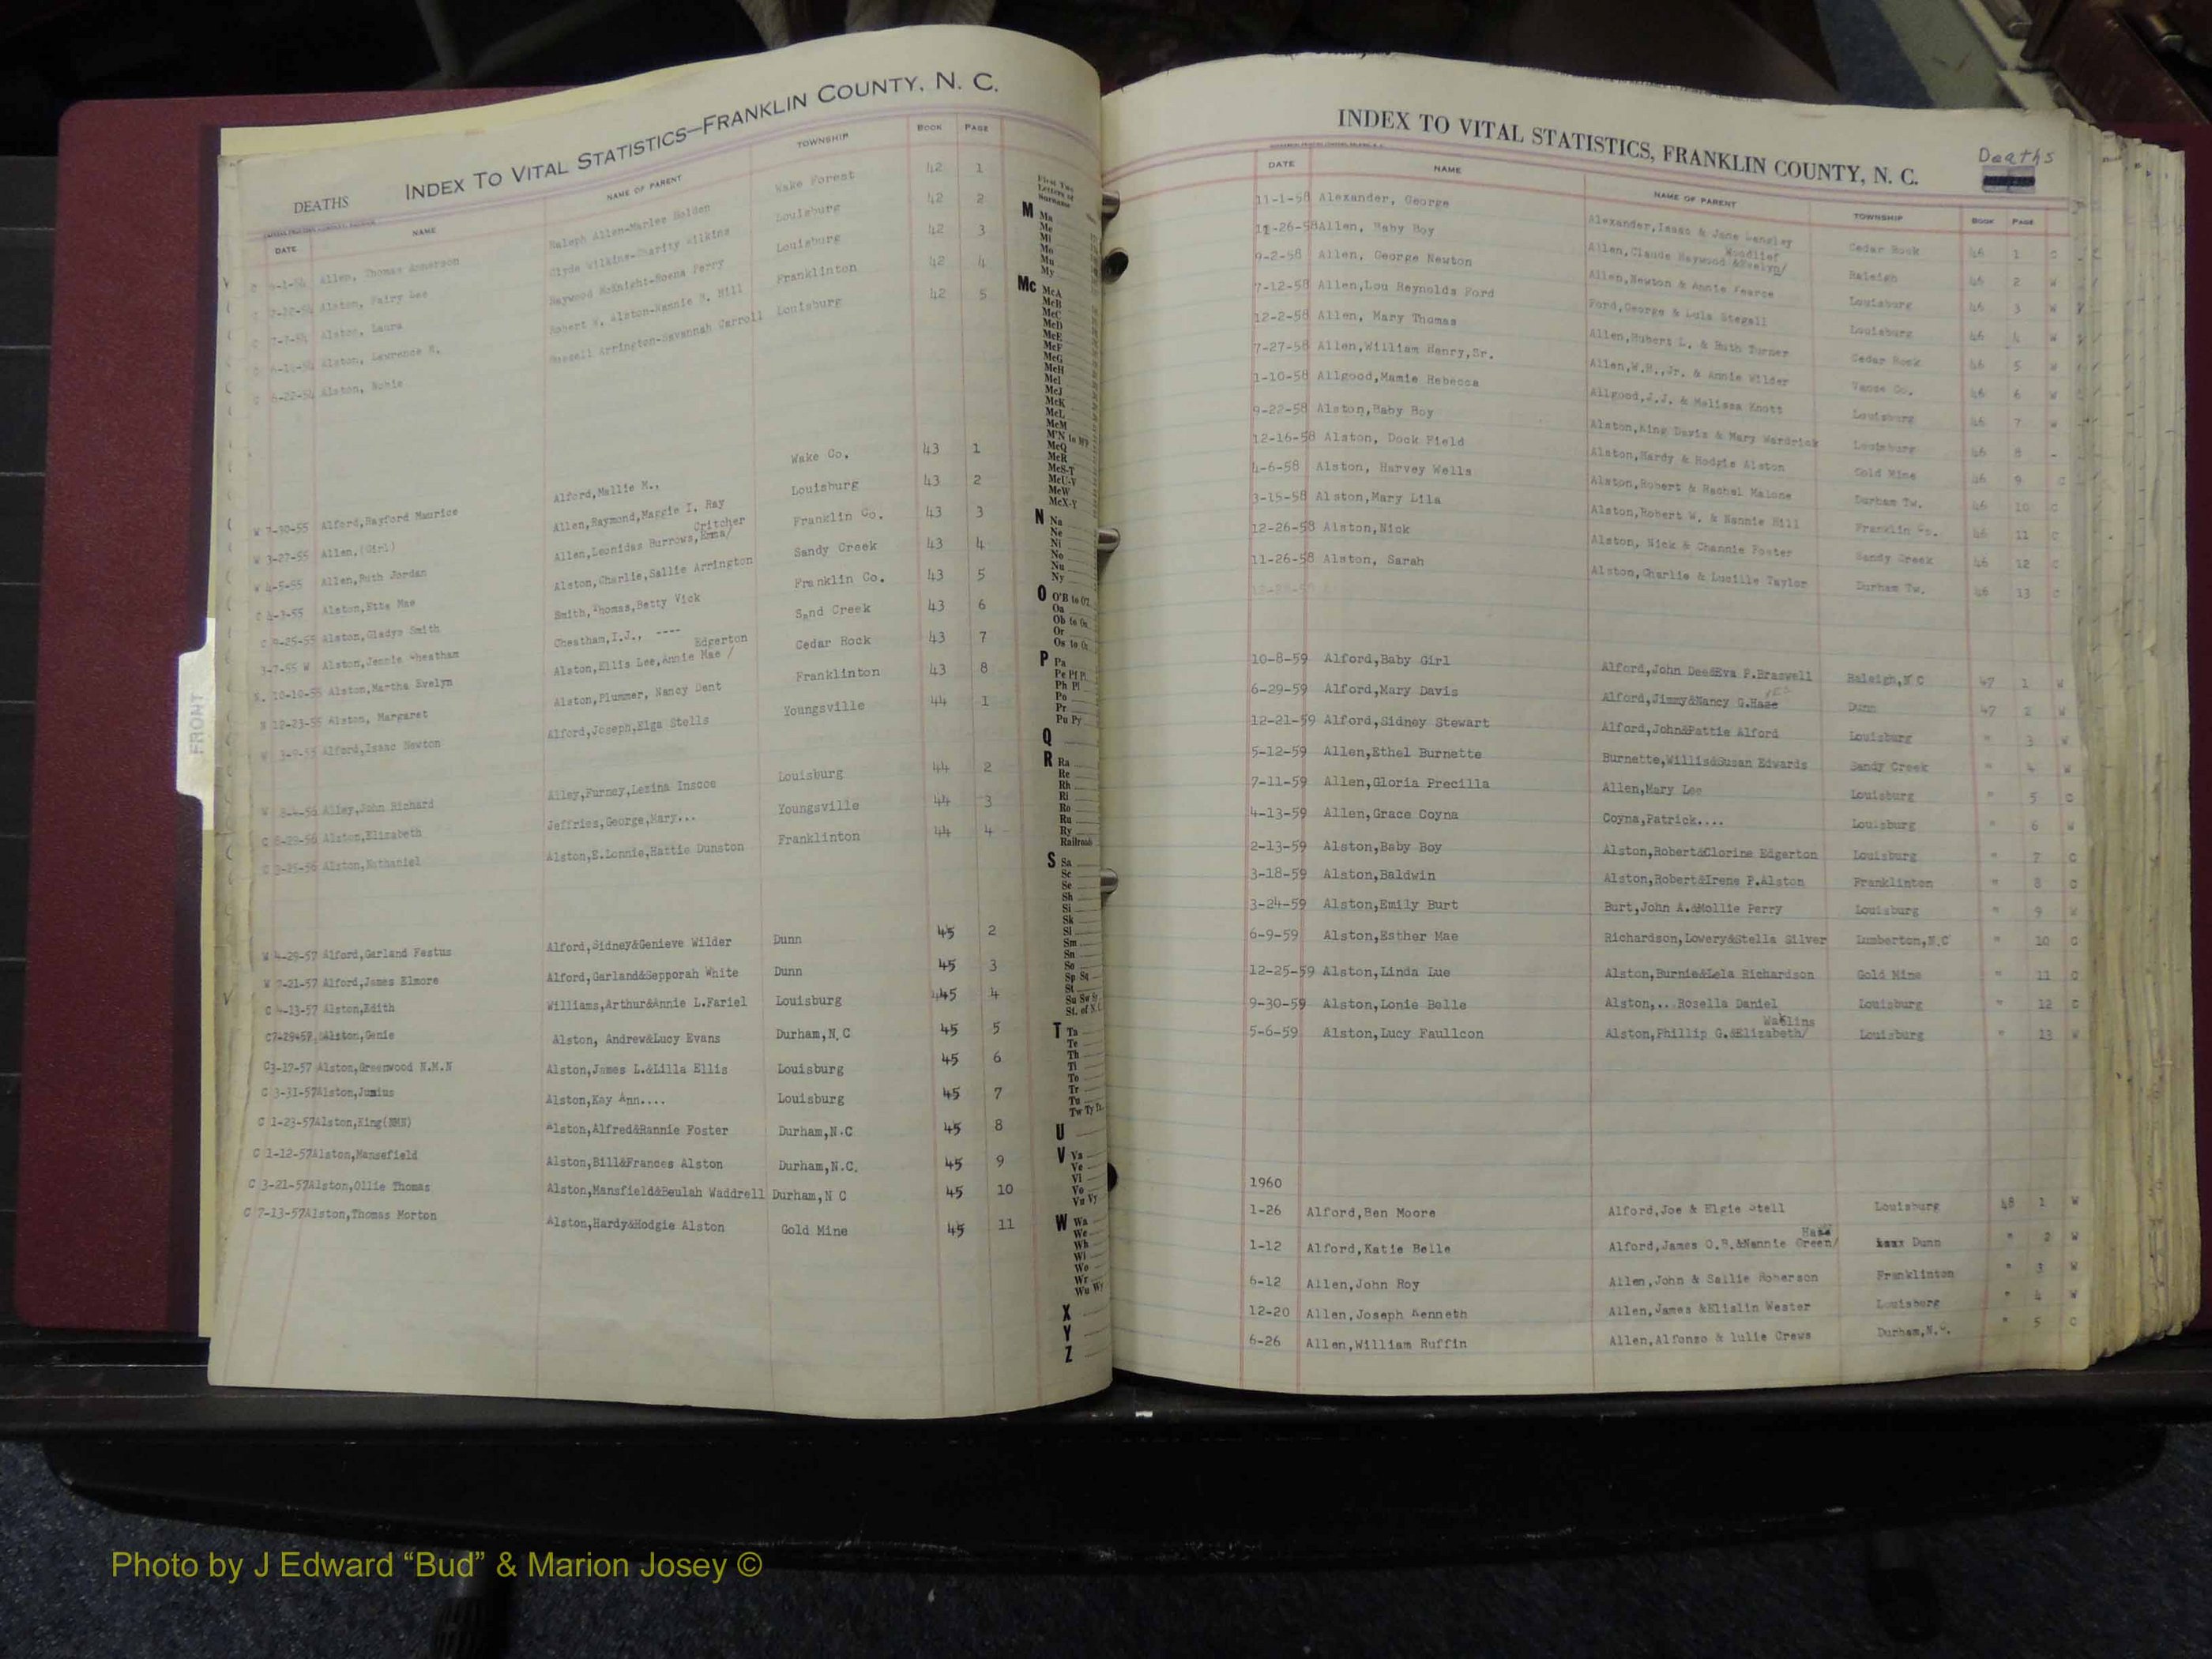 INDEX TO VITAL STATISTICS—FRANKLIN COUNTY, N. C.
DEATHS
DATE NAME NAME OF PARENT TOWNSHIP BOOK PAGE
Allen, Thomas Annerson Raleph Allen-Marier Holden Wake Forest 42 1
Alston, Fairy Lee Clyde Wilkins-Charity Wilkins Louisburg 42 2
C 7-7-54 Alston, Laura Haywood McKnight-Roena Perry Louisburg 42 3
Alston, Lawrence Robert W. Alston-Nannie B. Hill Franklinton 42 4
C 6-22-54 Alston, Robie Russell Arrington-Savannah Carroll Louisburg 42 5
W 7-30-55 Alford,Rayford Maurice Alford,Mallie M., Wake Co. 43 1
W 3-27-55 Allen,(Girl) Allen,Raymond,Maggie I. Ray Louisburg 43 2
W 4-5-55 Allen,Ruth Jordan Allen,Leonidas Burrows,Erma/ Critcher Franklin Co. 43 3
C 4-3-55 Alston,Etta Mae Alston,Charlie,Sallie Arrington Sandy Creek 43 4
C 4-25-55 Alston,Gladys Smith Smith,Thomas,Betty Vick Franklin Co. 43 5
3-7-55 W Alston,Jennie Cheatham Cheatham,I.J., ---- Sand Creek 43 6
N. 10-10-55 Alston,Martha Evelyn Alston,Ellis Lee,Annie Mae / Edgerton Cedar Rock 43 7
N 12-23-55 Alston, Margaret Alston,Plummer, Nancy Dent Franklinton 43 8
W Alford,Isaac Newton Alford,Joseph,Elga Stells Youngsville 44 1
W 8-4-56 Alley,John Richard Alley,Furney,Lezina Inscoe Louisburg 44 2
C 8-29-56 Alston,Elizabeth Jeffries,George,Mary... Youngsville 44 3
C 3-25-56 Alston,Nathaniel Alston,E.Lonnie,Hattie Dunston Franklinton 44 4
W 4-29-57 Alford,Garland Festus Alford,Sidney&Genieve Wilder Dunn 45 2
W 7-21-57 Alford,James Elmore Alford,Garland&Sepporah White Dunn 45 3
C 4-13-57 Alston,Edith Williams,Arthur&Annie L.Fariel Louisburg 45 4
C7-29-57 Alston,Genie Alston, Andrew&Lucy Evans Durham,N.C 45 5
C3-17-57 Alston,Greenwood N.M.N Alston,James L.&Lilla Ellis Louisburg 45 6
C 3-31-57Alston,Junius Alston,Kay Ann.... Louisburg 45 7
C 1-23-57Alston,King(NMN) Alston,Alfred&Rannie Foster Durham,N.C 45 8
C 1-12-57Alston,Mansefield Alston,Bill&Frances Alston Durham,N.C. 45 9
C 3-21-57Alston,Ollie Thomas Alston,Mansfield&Beulah Waddrell Durham,N C 45 10
C 7-13-57Alston,Thomas Morton Alston,Hardy&Hodgie Alston Gold Mine 45 11
FRONT
First Two Letters of Surname
M Ma
Me
Mi
Mo
Mu
My
Mc McA
McB
McC
McD
McE
McF
McG
McH
McI
McJ
McK
McL
McM
M'N to M'P
McQ
McR
McS-T
McU-V
McW
McX-Y
N Na
Ne
Ni
No
Nu
Ny
O O'B to O'Z
Oa
Ob to On
Or
Os to Oz
P Pa
Pe Pf Pi
Ph Pl
Po
Pr
Pu Py
Q
R Ra
Re
Rh
Ri
Ro
Ru
Ry
Railroads
S Sa
Sc
Se
Sh
Si
Sk
Sl
Sm
Sn
So
Sp Sq
St
Su Sw Sy
St. of N.C.
T Ta
Te
Th
Ti
To
Tr
Tu
Tw Ty Tz
U
V Va
Ve
Vi
Vo
Vu Vy
W Wa
We
Wh
Wi
Wo
Wr
Wu Wy
X
Y
Z
INDEX TO VITAL STATISTICS, FRANKLIN COUNTY, N. C.
Deaths
DATE NAME NAME OF PARENT TOWNSHIP BOOK PAGE
11-1-58 Alexander, George Alexander,Isaac & Jane Cedar Rock 46 1 C
11-26-58Allen, Baby Boy Allen,Claude Haywood &Evelyn/ Woodlief Raleigh 46 2 W
9-2-58 Allen, George Newton Allen,Newton & Annie Pearce Louisburg 46 3 W
7-12-58 Allen,Lou Reynolds Ford Ford,George & Lula Stegall Louisburg 46 4 W
12-2-58 Allen, Mary Thomas Allen,Hubert L. & Ruth Turner Cedar Rock 46 5 W
7-27-58 Allen,William Henry,Sr. Allen,W.H.,Jr. & Annie Wilder Vance Co. 46 6 W
1-10-58 Allgood,Mamie Rebecca Allgood,J.J. & Melissa Knott Louisburg 46 7 W
9-22-58 Alston,Baby Boy Alston,King Davis & Mary Wardrick Louisburg 46 8 -
12-16-58 Alston, Dock Field Alston,Hardy & Hodgie Alston Gold Mine 46 9 C
4-6-58 Alston, Harvey Wells Alston,Robert & Rachel Malone Durham Tw. 46 10 C
3-15-58 Alston,Mary Lila Alston,Robert W. & Nannie Hill Franklin Co. 46 11 C
12-26-58 Alston,Nick Alston, Nick & Channie Foster Sandy Creek 46 12 C
11-26-58 Alston, Sarah Alston,Charlie & Lucille Taylor Durham Tw. 46 13 C
10-8-59 Alford,Baby Girl Alford,John Dee&Eva P.Braswell Raleigh,N C 47 1 W
6-29-59 Alford,Mary Davis Alford,Jimmy&Nancy G.Haze Dunn 47 2 W
12-21-59 Alford,Sidney Stewart Alford,John&Pattie Alford Louisburg " 3 W
5-12-59 Allen,Ethel Burnette Burnette,Willis&Susan Edwards Sandy Creek " 4 W
7-11-59 Allen,Gloria Precilla Allen,Mary Lee Louisburg " 5 C
4-13-59 Allen,Grace Coyna Coyna,Patrick.... Louisburg " 6 W
2-13-59 Alston,Baby Boy Alston,Robert&Clorine Edgerton Louisburg " 7 C
3-18-59 Alston,Baldwin Alston,Robert&Irene P.Alston Franklinton " 8 C
3-24-59 Alston,Emily Burt Burt,John A.&Mollie Perry Louisburg " 9 W
6-9-59 Alston,Esther Mae Richardson,Lowery&Stella Silver Lumberton,N.C " 10 C
12-25-59 Alston,Linda Lue Alston,Burnie&Lela Richardson Gold Mine " 11 C
9-30-59 Alston,Lonie Belle Alston,...Rosella Daniel Louisburg " 12 C
5-6-59 Alston,Lucy Faullcon Alston,Phillip G.&Elizabeth/ Louisburg " 13 W
1960
1-26 Alford,Ben Moore Alford,Joe & Elgie Stell Louisburg 48 1 W
1-12 Alford,Katie Belle Alford,James O.B.&Nannie Green/ Haze Dunn " 2 W
6-12 Allen,John Roy Allen,John & Sallie Roberson Franklinton " 3 W
12-20 Allen,Joseph Kenneth Allen,James &Elislin Wester Louisburg " 4 W
6-26 Allen,William Ruffin Allen,Alfonso & lulie Crews Durham,N.C. " 5 C
Photo by J Edward “Bud” & Marion Josey ©